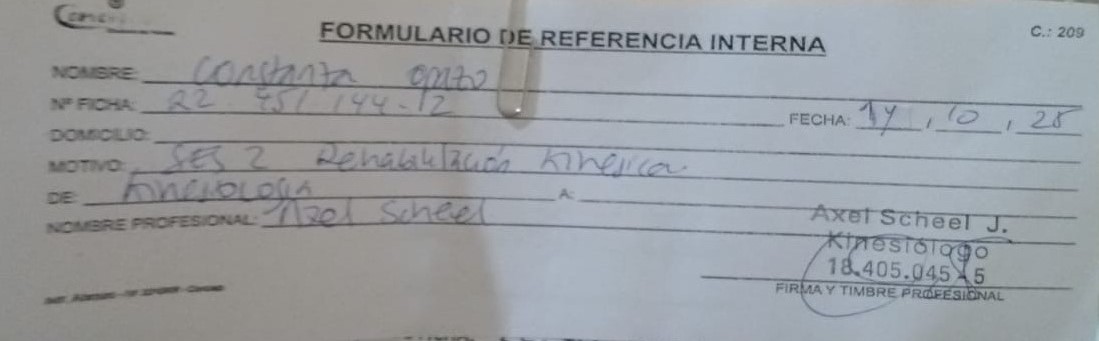 FORMULARIO DE REFERENCIA INTERNA
C.: 209
NOMBRE: Constanza
Nº FICHA: 22 451 144-12
FECHA: 14, 10, 25
DOMICILIO:
MOTIVO: SES 2 Rehabilitación Kinésica.
DE: Kinesiología A:
NOMBRE PROFESIONAL: Axel Scheel
Axel Scheel J.
Kinesiólogo
18.405.045-5
FIRMA Y TIMBRE PROFESIONAL